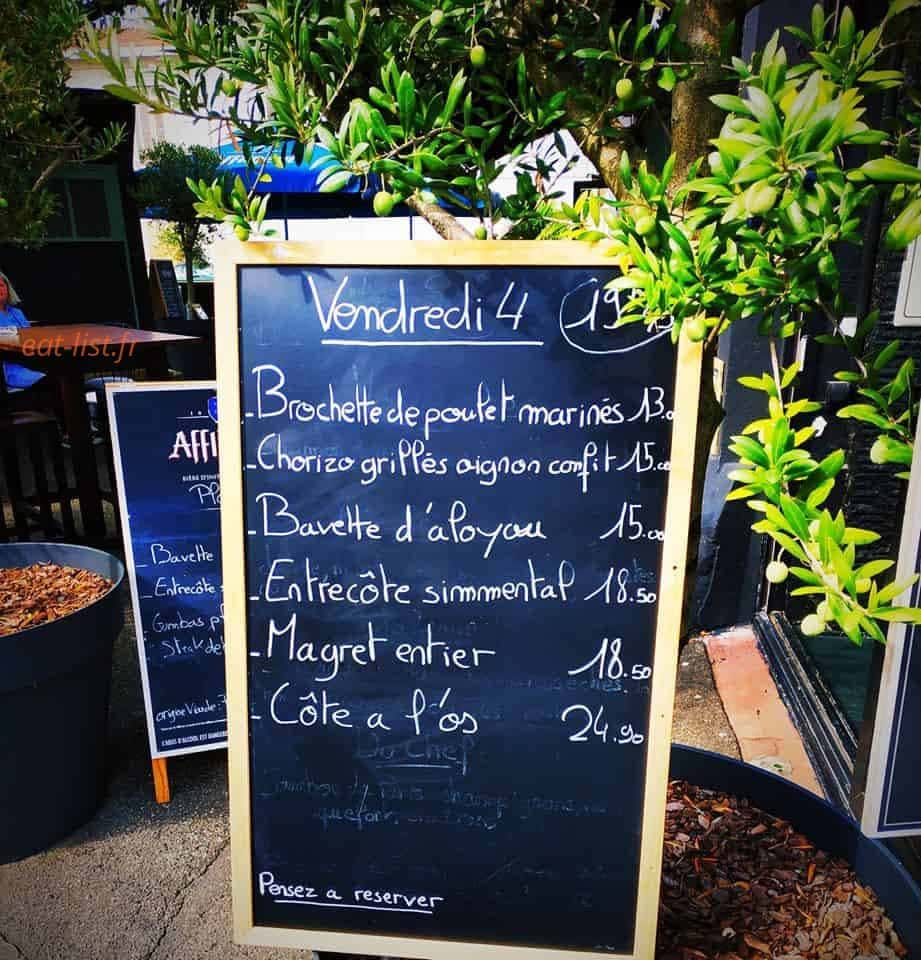 Vendredi 4
- Brochette de poulet marinés 13.
- Chorizo grillés oignon confit 15.00
- Bavette d'aloyau 15.00
- Entrecôte simmmental 18.50
- Magret entier 18.50
- Côte a l'os 24.90
Du Chef
Pensez a reserver
eat-list.fr
Affl
- Bavette
- Entrecôte
- Steak de
origine Viande :
L'ABUS D'ALCOOL EST DANGEREUX